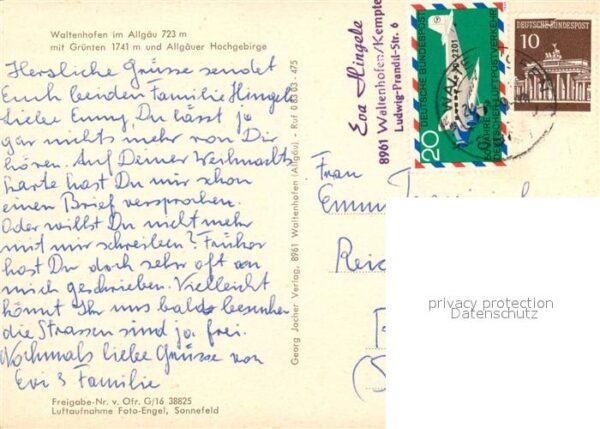 Waltenhofen im Allgäu 723 m
mit Grünten 1741 m und Allgäuer Hochgebirge
Herzliche Grüsse sendet
Euch beiden Familie Hingele
Liebe Emmy, Du lässt ja
gar nichts mehr von Dir
hören. Auf Deiner Weihnachts
karte hast Du mir schon
einen Brief versprochen.
Oder willst Du nicht mehr
mit mir schreiben? Früher
hast Du doch sehr oft an
mich geschrieben. Vielleicht
könnt Ihr uns bald besuchen
die Strassen sind ja frei.
Nochmals liebe Grüsse von
Evi & Familie
Freigabe-Nr. v. Ofr. G/16 38825
Luftaufnahme Foto-Engel, Sonnefeld
Georg Jocher Verlag, 8961 Waltenhofen (Allgäu) - Ruf 0 83 03 - 475
Eva Hingele
8961 Waltenhofen/Kempte
Ludwig-Prandtl-Str. 6
DEUTSCHE BUNDESPOST
20
JAHRE
DEUTSCHER LUFTPOSTVERKEHR
DEUTSCHE BUNDESPOST
10
Frau
privacy protection
Datenschutz